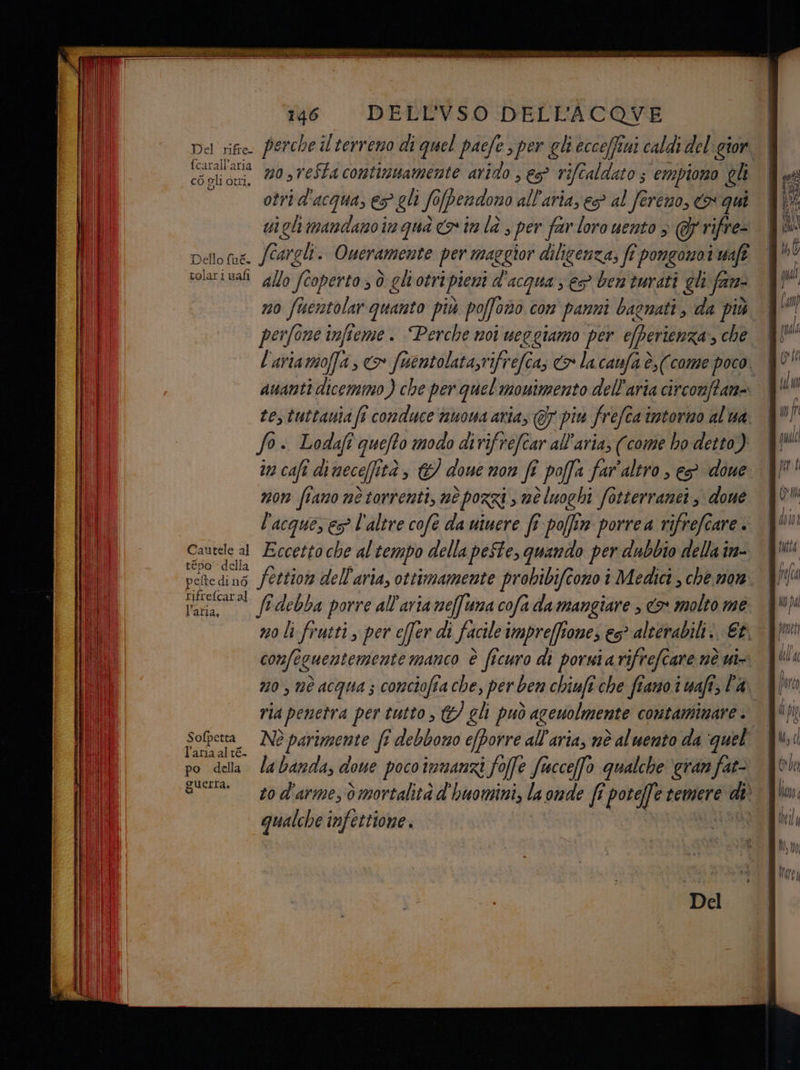 146 DELL'VSO DELL'ACQVE
Del rifre-
fcarall'aria
cō gli otri,
perche il terreno di quel paefe, per gli ecceffiui caldi del gior
no, refta continuamente arido, & rifcaldato; empiono gli
otri d'acqua, & gli fofpendono all'aria, & al fereno, & qui
ui gli mandano in quà & in là, per far loro uento, & rifre-
Dello fuē-
tolar i uafi
fcargli. Oueramente per maggior diligenza, fi pongono i uafi
allo fcoperto, ò gli otri pieni d'acqua, & ben turati gli fan-
no fuentolar quanto più poffono con panni bagnati, da più
perfone infieme. Perche noi ueggiamo per efperienza, che
l'aria moffa, & fuentolata, rifrefca, & la caufa è, (come poco
auanti dicemmo) che per quel mouimento dell'aria circonftan-
te, tuttauia fi conduce nuoua aria, & piu frefca intorno al ua
fo. Lodafi quefto modo di rifrefcar all'aria, (come ho detto)
in cafi di neceffità, & doue non fi poffa far'altro, & doue
non fiano nè torrenti, nè pozzi, nè luoghi fotterranei, doue
l'acque, & l'altre cofe da uiuere fi poffin porre a rifrefcare.
Cautele al
tēpo della
pefte di nō
rifrefcar al
l'aria,
Eccetto che al tempo della pefte, quando per dubbio della in-
fettion dell'aria, ottimamente prohibifcono i Medici, che non
fi debba porre all'aria neffuna cofa da mangiare, & molto me
no li frutti, per effer di facile impreffione, & alterabili. Et
confeguentemente manco è ficuro di porui a rifrefcare nè ui-
no, nè acqua; conciofia che, per ben chiufi che fiano i uafi, l'a
ria penetra per tutto, & gli può ageuolmente contaminare.
Sofpetta
l'aria al tē-
po della
guerra.
Nè parimente fi debbono efporre all'aria, nè al uento da quel
la banda, doue poco innanzi foffe fucceffo qualche gran fat-
to d'arme, ò mortalità d'huomini, la onde fi poteffe temere di
qualche infettione.
Del